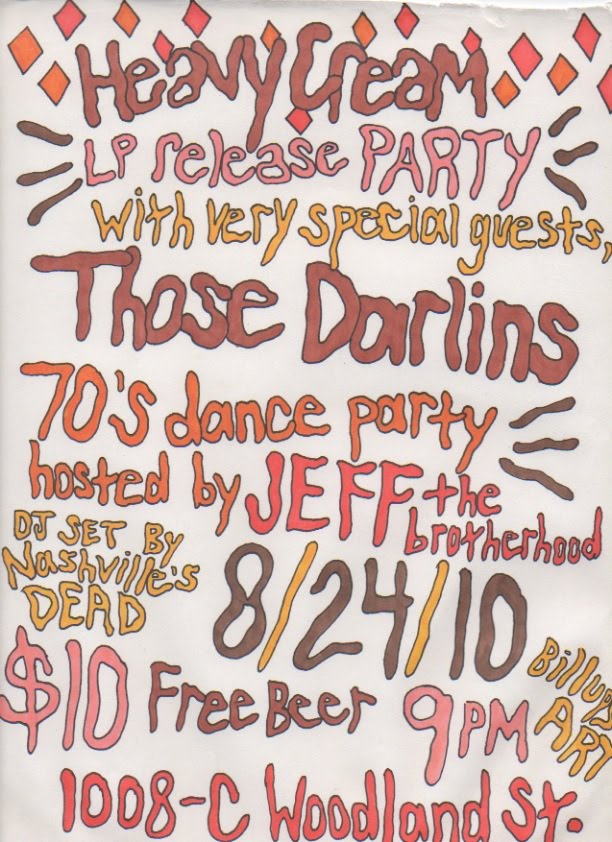 Heavy Cream
LP release PARTY
with very special guests,
Those Darlins
70's dance party
hosted by JEFF the brotherhood
DJ SET BY
Nashville's
DEAD
8/24/10
$10 Free Beer 9PM
Billups
ART
1008-C Woodland St.